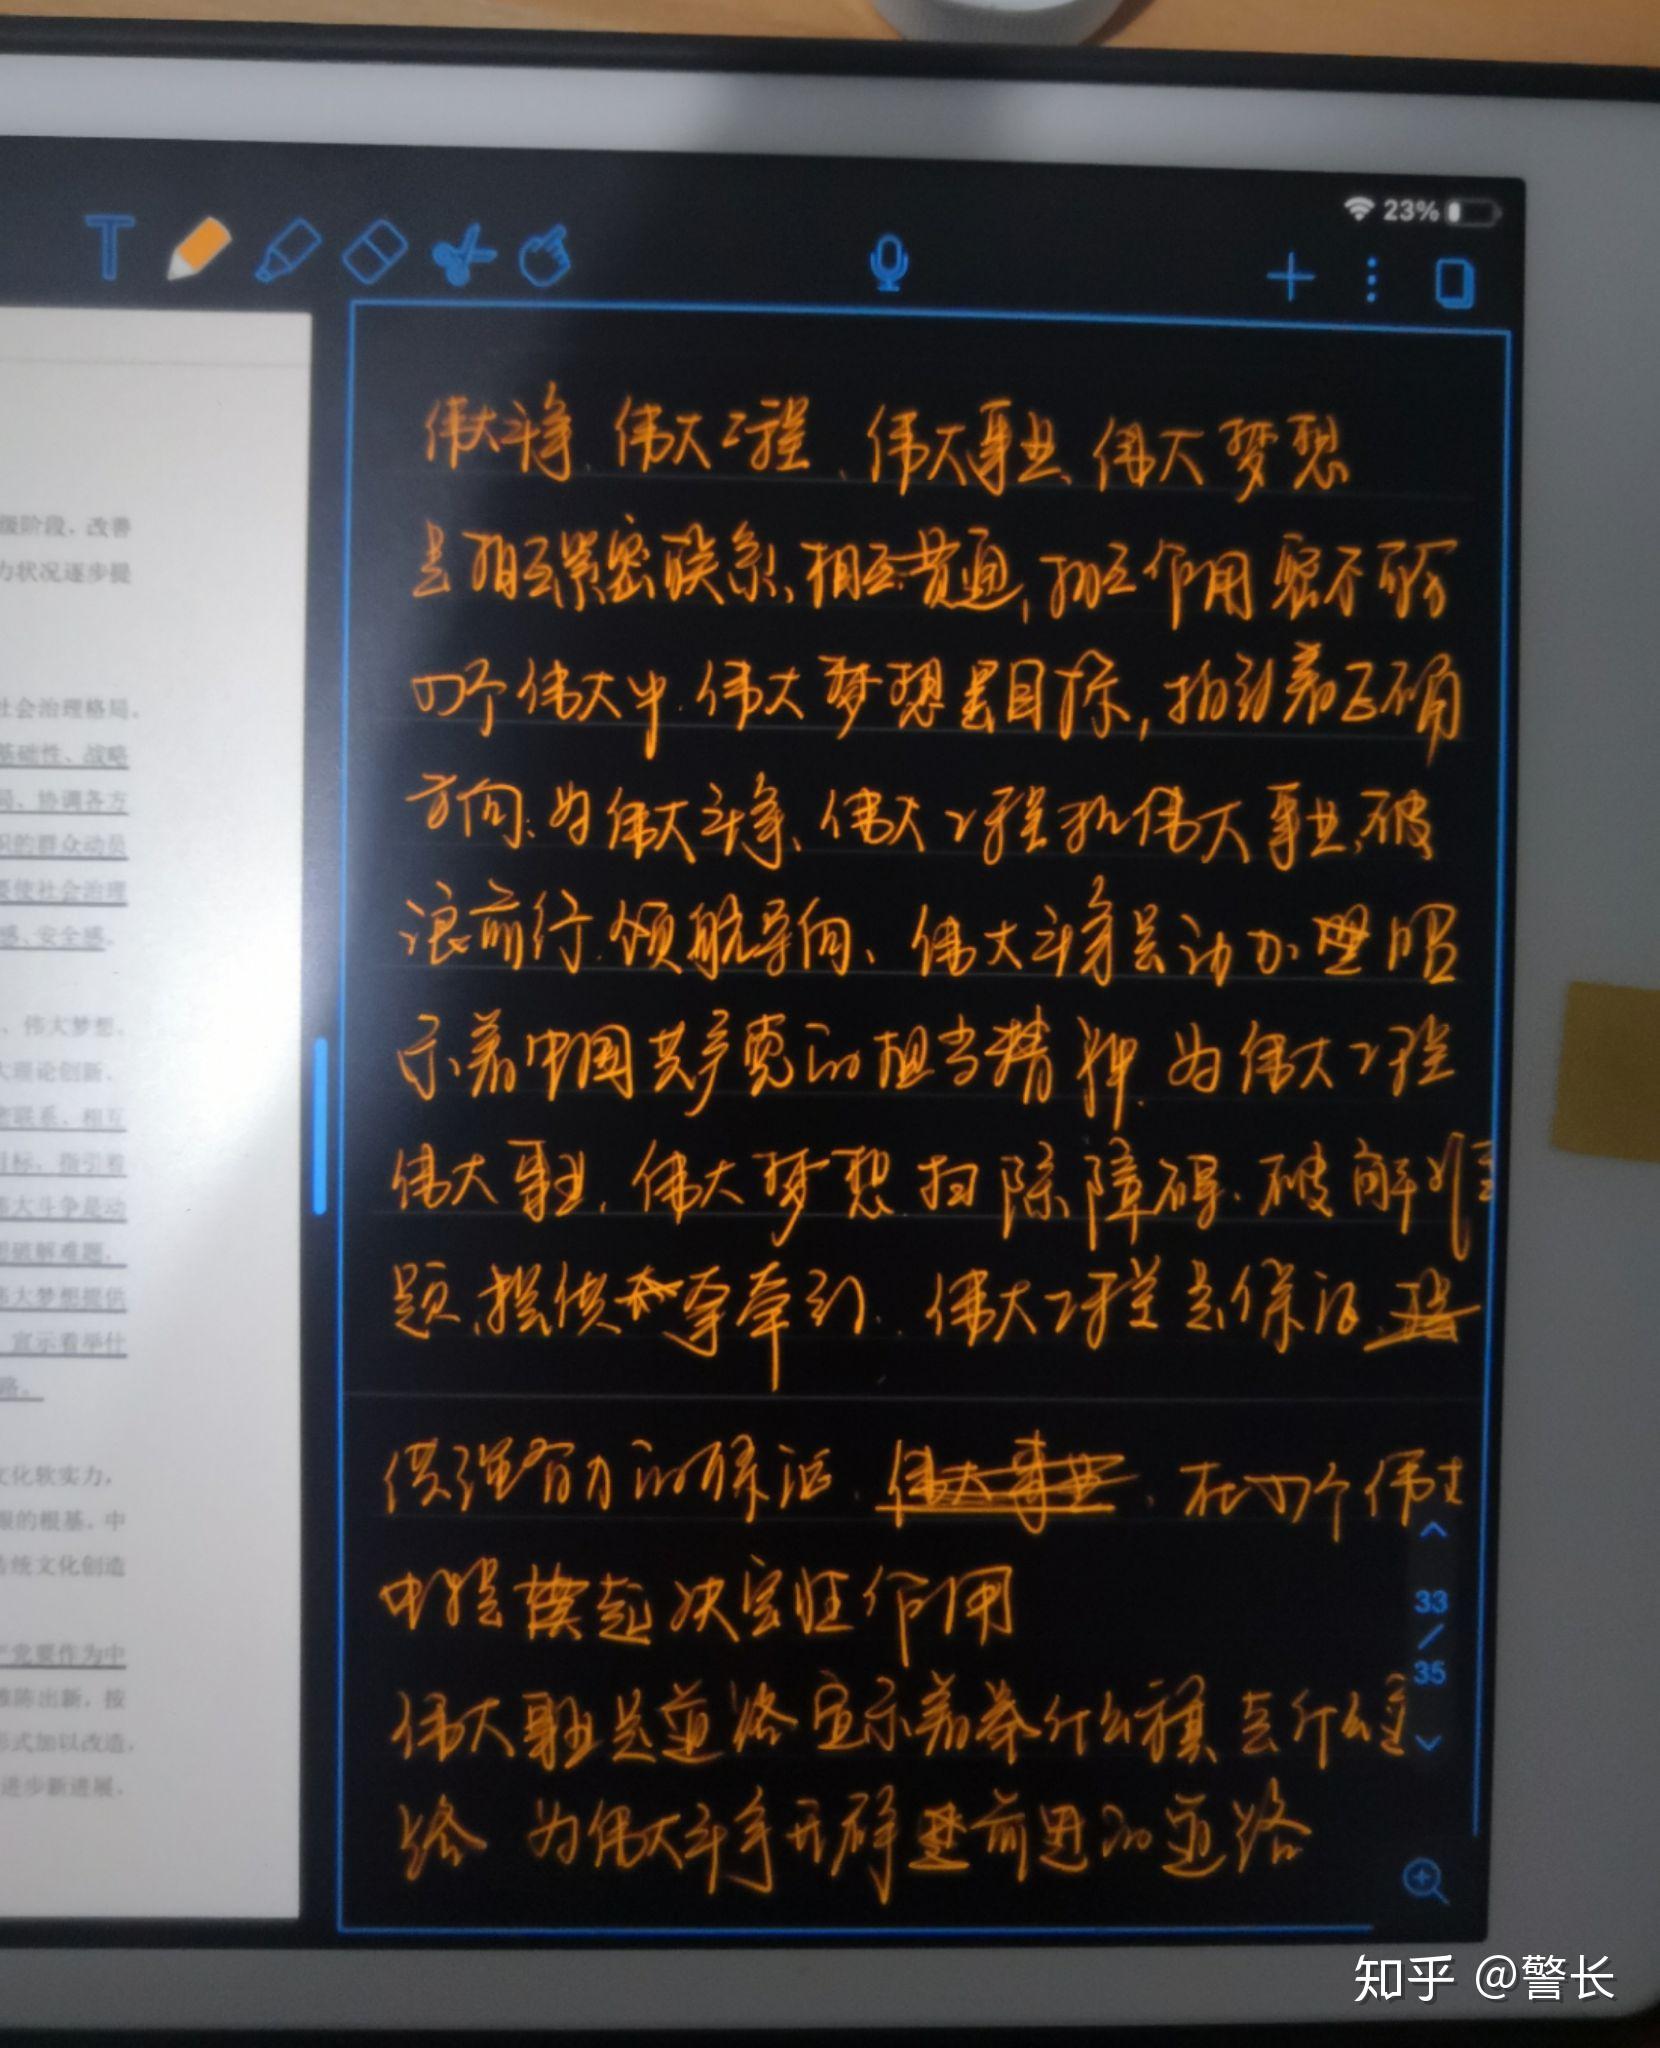 23%
级阶段，改善
力状况逐步提
社会治理格局。
基础性、战略
局、协调各方
织的群众动员
要使社会治理
感、安全感。
、伟大梦想，
大理论创新、
密联系、相互
目标，指引着
伟大斗争是动
想破解难题，
伟大梦想提供
，宣示着举什
路。
文化软实力，
眼的根基，中
传统文化创造
产党要作为中
推陈出新，按
形式加以改造，
进步新进展，
伟大斗争、伟大工程、伟大事业、伟大梦想
是相互紧密联系、相互贯通，相互作用 密不可分
四个伟大中，伟大梦想是目标，指引着正确
方向，为伟大斗争、伟大工程和伟大事业，破
浪前行，领航导向、伟大斗争是动力 昭
示着中国共产党的担当精神，为伟大工程
伟大事业，伟大梦想，扫除障碍，破解难
题，提供牵引，伟大工程是保证，
供强有力的保证，伟大事业，在四个伟大
中 起决定性作用
伟大事业是道路 宣示着举什么旗 走什么道
路 为伟大斗争开辟 前进的道路
33
/
35
知乎 @警长